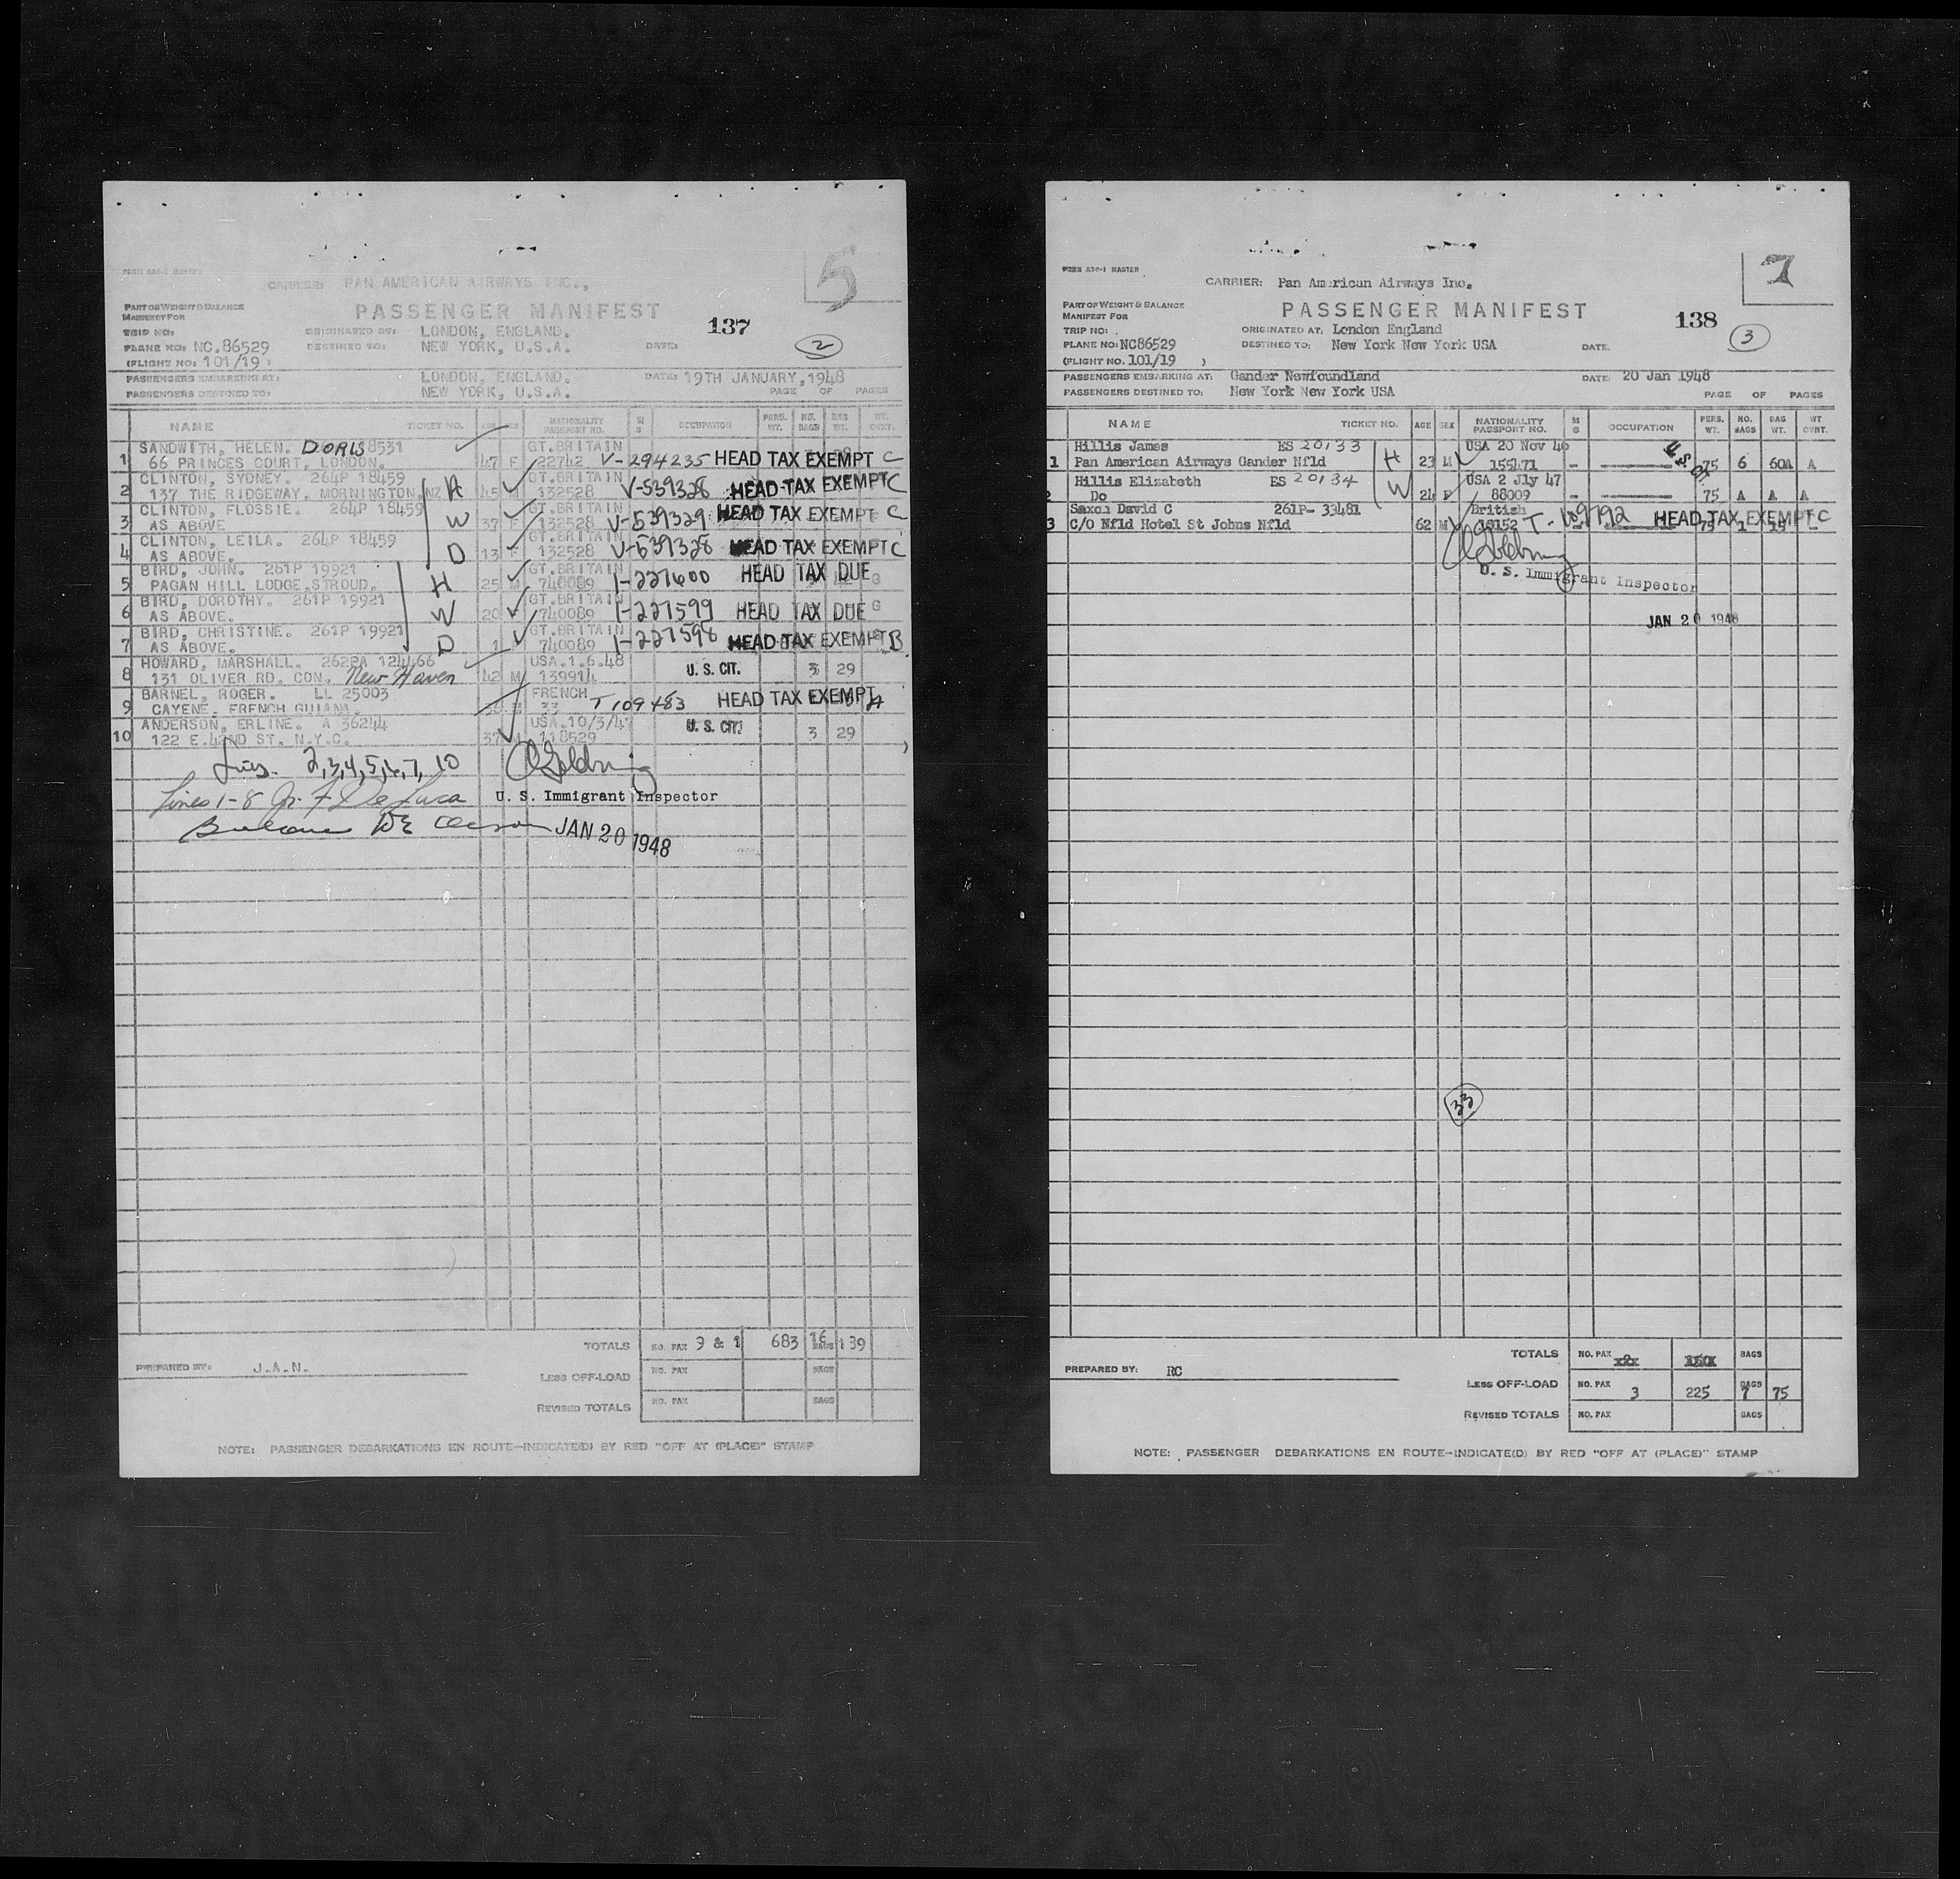 5
FORM ASC-1 MASTER
CARRIER: PAN AMERICAN AIRWAYS INC.,
PART OF WEIGHT & BALANCE
MANIFEST FOR
PASSENGER MANIFEST
137
TRIP NO:
ORIGINATED AT: LONDON, ENGLAND.
PLANE NO: NC.86529
DESTINED TO: NEW YORK, U.S.A.
DATE:
2
(FLIGHT NO: 101/19 )
PASSENGERS EMBARKING AT: LONDON, ENGLAND.
DATE: 19TH JANUARY, 1948
PASSENGERS DESTINED TO: NEW YORK, U.S.A.
PAGE OF PAGES
NAME TICKET NO. AGE SEX NATIONALITY PASSPORT NO. M S OCCUPATION PERS. WT. NO. BAGS BAG WT. WT. OVNT.
SANDWITH, HELEN. DORIS 8531 GT.BRITAIN
1 66 PRINCES COURT, LONDON. 47 F 22742 V-294235 HEAD TAX EXEMPT C
CLINTON, SYDNEY. 264P 18459 GT.BRITAIN
2 137 THE RIDGEWAY, MORNINGTON,NZ H 45 M 132528 V-539328 HEAD TAX EXEMPT C
CLINTON, FLOSSIE. 264P 18459 GT.BRITAIN
3 AS ABOVE W 37 F 132528 V-539329 HEAD TAX EXEMPT C
CLINTON, LEILA. 264P 18459 GT.BRITAIN
4 AS ABOVE. D 13 F 132528 V-539328 HEAD TAX EXEMPT C
BIRD, JOHN. 261P 19921 GT.BRITAIN
5 PAGAN HILL LODGE, STROUD. H 25 M 740089 I-227600 HEAD TAX DUE
BIRD, DOROTHY. 261P 19921 GT.BRITAIN
6 AS ABOVE. W 20 740089 I-227599 HEAD TAX DUE
BIRD, CHRISTINE. 261P 19921 GT.BRITAIN
7 AS ABOVE. D 1 740089 I-227598 HEAD TAX EXEMPT B
HOWARD, MARSHALL. 262PA 124466 USA.1.6.48
8 131 OLIVER RD. CON. New Haven 42 M 139914 U. S. CIT. 3 29
BARNEL, ROGER. LL 25003 FRENCH
9 CAYENE. FRENCH GUIANA. 33 T 109483 HEAD TAX EXEMPT A
ANDERSON, ERLINE. A 36244 USA.10/3/47
10 122 E.42ND ST. N.Y.C. 37 118529 U. S. CIT. 3 29
2,3,4,5,6,7, 10
Lines 1-8 F De Luca
U. S. Immigrant Inspector
JAN 20 1948
TOTALS NO. PAX 9 & 1 683 16 BAGS 139
PREPARED BY: J.A.N.
LESS OFF-LOAD NO. PAX BAGS
REVISED TOTALS NO. PAX BAGS
NOTE: PASSENGER DEBARKATIONS EN ROUTE-INDICATE(D) BY RED "OFF AT (PLACE)" STAMP
FORM ASC-1 MASTER
CARRIER: Pan American Airways Inc.
PART OF WEIGHT & BALANCE
MANIFEST FOR
PASSENGER MANIFEST
138
TRIP NO:
ORIGINATED AT: London England
3
PLANE NO: NC86529
DESTINED TO: New York New York USA
DATE.
(FLIGHT NO. 101/19 )
PASSENGERS EMBARKING AT: Gander Newfoundland
DATE: 20 Jan 1948
PASSENGERS DESTINED TO: New York New York USA
PAGE OF PAGES
NAME TICKET NO. AGE SEX NATIONALITY PASSPORT NO. M S OCCUPATION PERS. WT. NO. BAGS BAG WT. WT OVNT.
Hillis James ES 20133 USA 20 Nov 46 U.S. Cit
1 Pan American Airways Gander Nfld H 23 M 155471 - 75 6 60A A
Hillis Elizabeth ES 20134 USA 2 Jly 47
2 Do W 24 F 88009 - 75 A A A
Saxon David C 261P- 33481 British
3 C/O Nfld Hotel St Johns Nfld 62 M 18152 T-109792 HEAD TAX EXEMPT C 75 1 15
U. S. Immigrant Inspector
JAN 20 1948
33
TOTALS NO. PAX BAGS
PREPARED BY: RC
LESS OFF-LOAD NO. PAX 3 225 BAGS 7 75
REVISED TOTALS NO. PAX BAGS
NOTE: PASSENGER DEBARKATIONS EN ROUTE-INDICATE(D) BY RED "OFF AT (PLACE)" STAMP